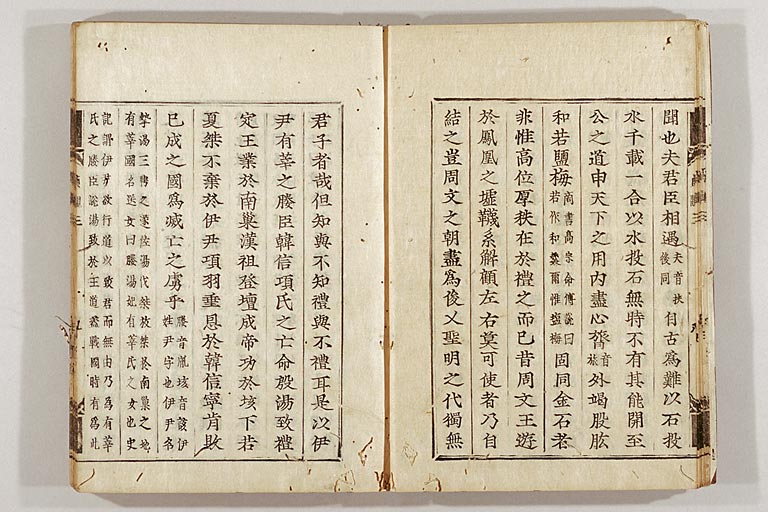 聞也夫君臣相遇夫音扶後同自古爲難以石投
水千載一合以水投石無時不有其能開至
公之道申天下之用内盡心膂音旅外竭股肱
和若鹽梅商書高宗命傅說曰若作和羹爾惟鹽梅固同金石者
非惟高位厚秩在於禮之而已昔周文王遊
於鳳凰之墟韈系解顧左右莫可使者乃自
結之豈周文之朝盡爲俊乂聖明之代獨無
君子者哉但知與不知禮與不禮耳是以伊
尹有莘之媵臣韓信項氏之亡命殷湯致禮
定王業於南巢漢祖登壇成帝功於垓下若
夏桀不棄於伊尹項羽垂恩於韓信寧肯敗
已成之國爲滅亡之虜乎媵音胤垓音該伊姓尹字也伊尹名
摯湯三聘之遂佐湯伐桀放桀於南巢之地
有莘國名送女曰媵湯妃有莘氏之女也史
記謂伊尹欲行道以致君而無由乃爲有莘
氏之媵臣說湯致於王道蓋戰國時有爲此